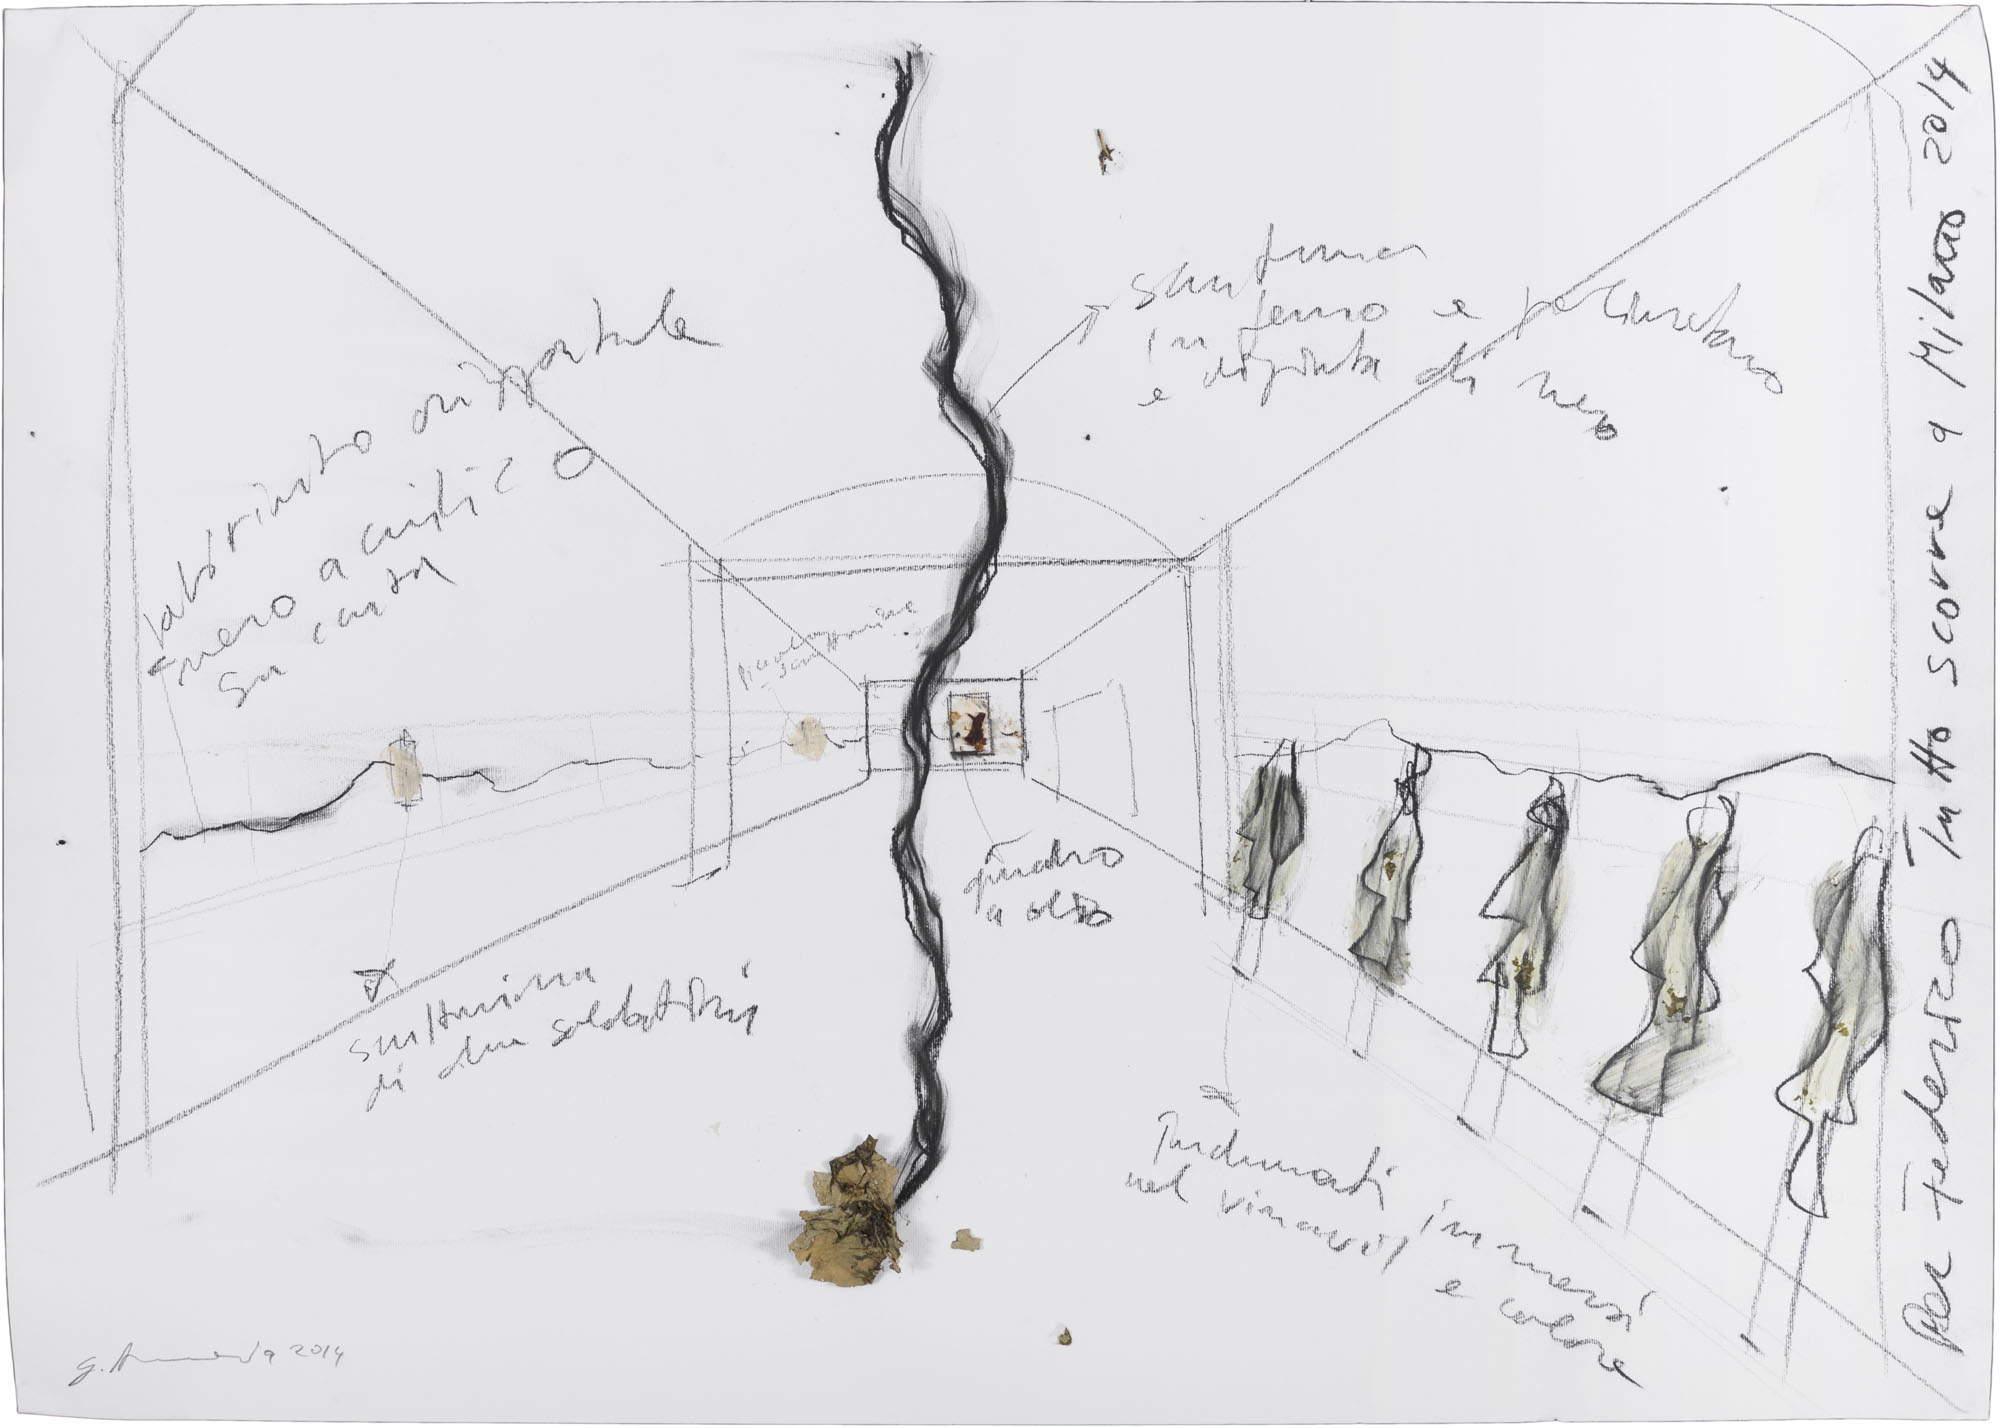 labirinto orizzontale
nero a
su carta
scultura
in ferro e
e dipinta di nero
piccola
scultura
quadro
a olio
scultura
di due
Indumenti immersi
nel vinavil e colore
Per Federico Tutto scorre a Milano 2014
G. 2014